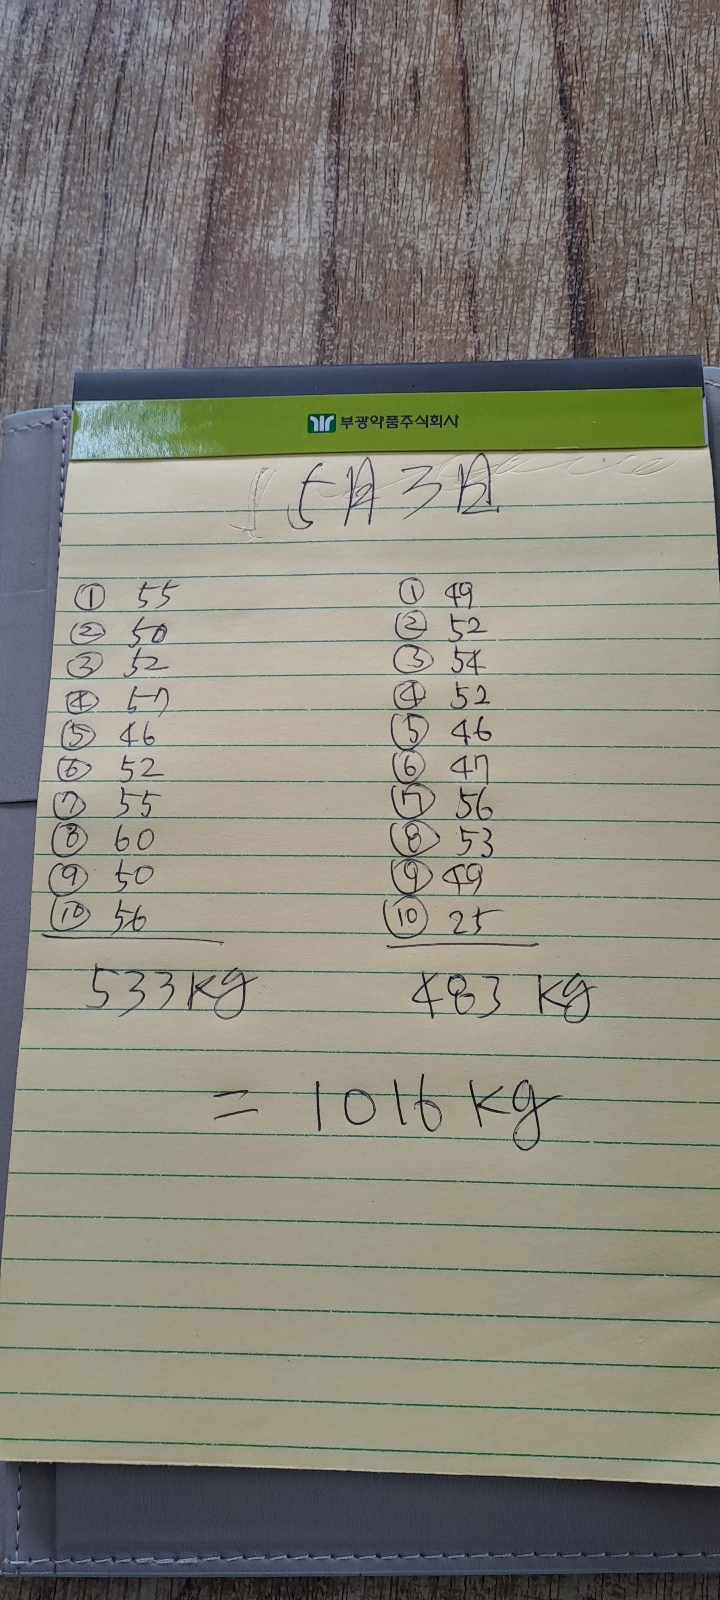 부광약품주식회사
5월 3일
① 55 ① 49
② 50 ② 52
③ 52 ③ 54
④ 57 ④ 52
⑤ 46 ⑤ 46
⑥ 52 ⑥ 47
⑦ 55 ⑦ 56
⑧ 60 ⑧ 53
⑨ 50 ⑨ 49
⑩ 56 ⑩ 25
533 kg 483 kg
= 1016 kg